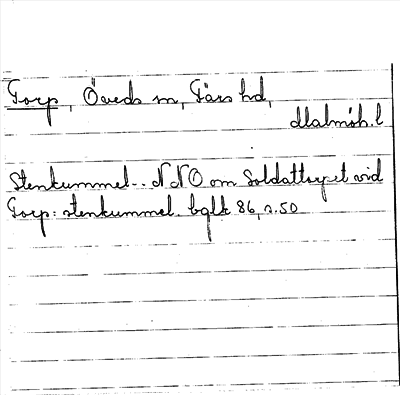 Torp, Öveds sn, Färs hd,
Malmöh. l
Stenkummel. NNO om Soldattorpet vid
Torp: stenkummel. bglk 86, s. 50